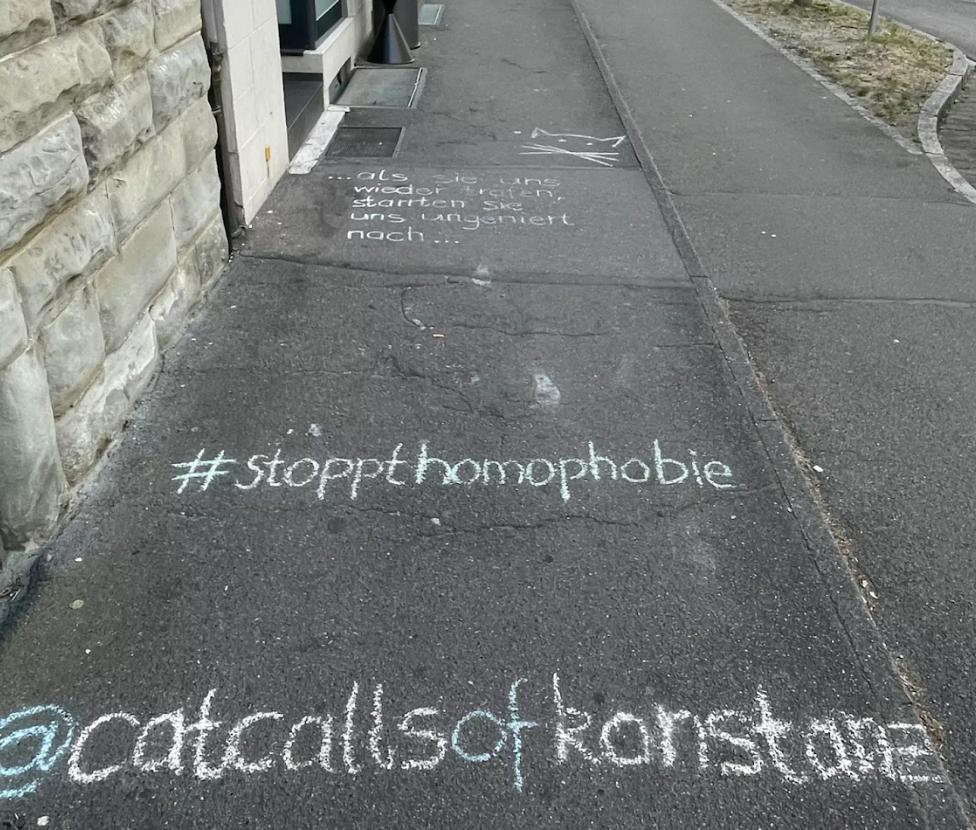 ...als sie uns
wieder trafen,
starrten sie
uns ungeniert
nach...
#stoppthomophobie
@catcallsofkonstanz